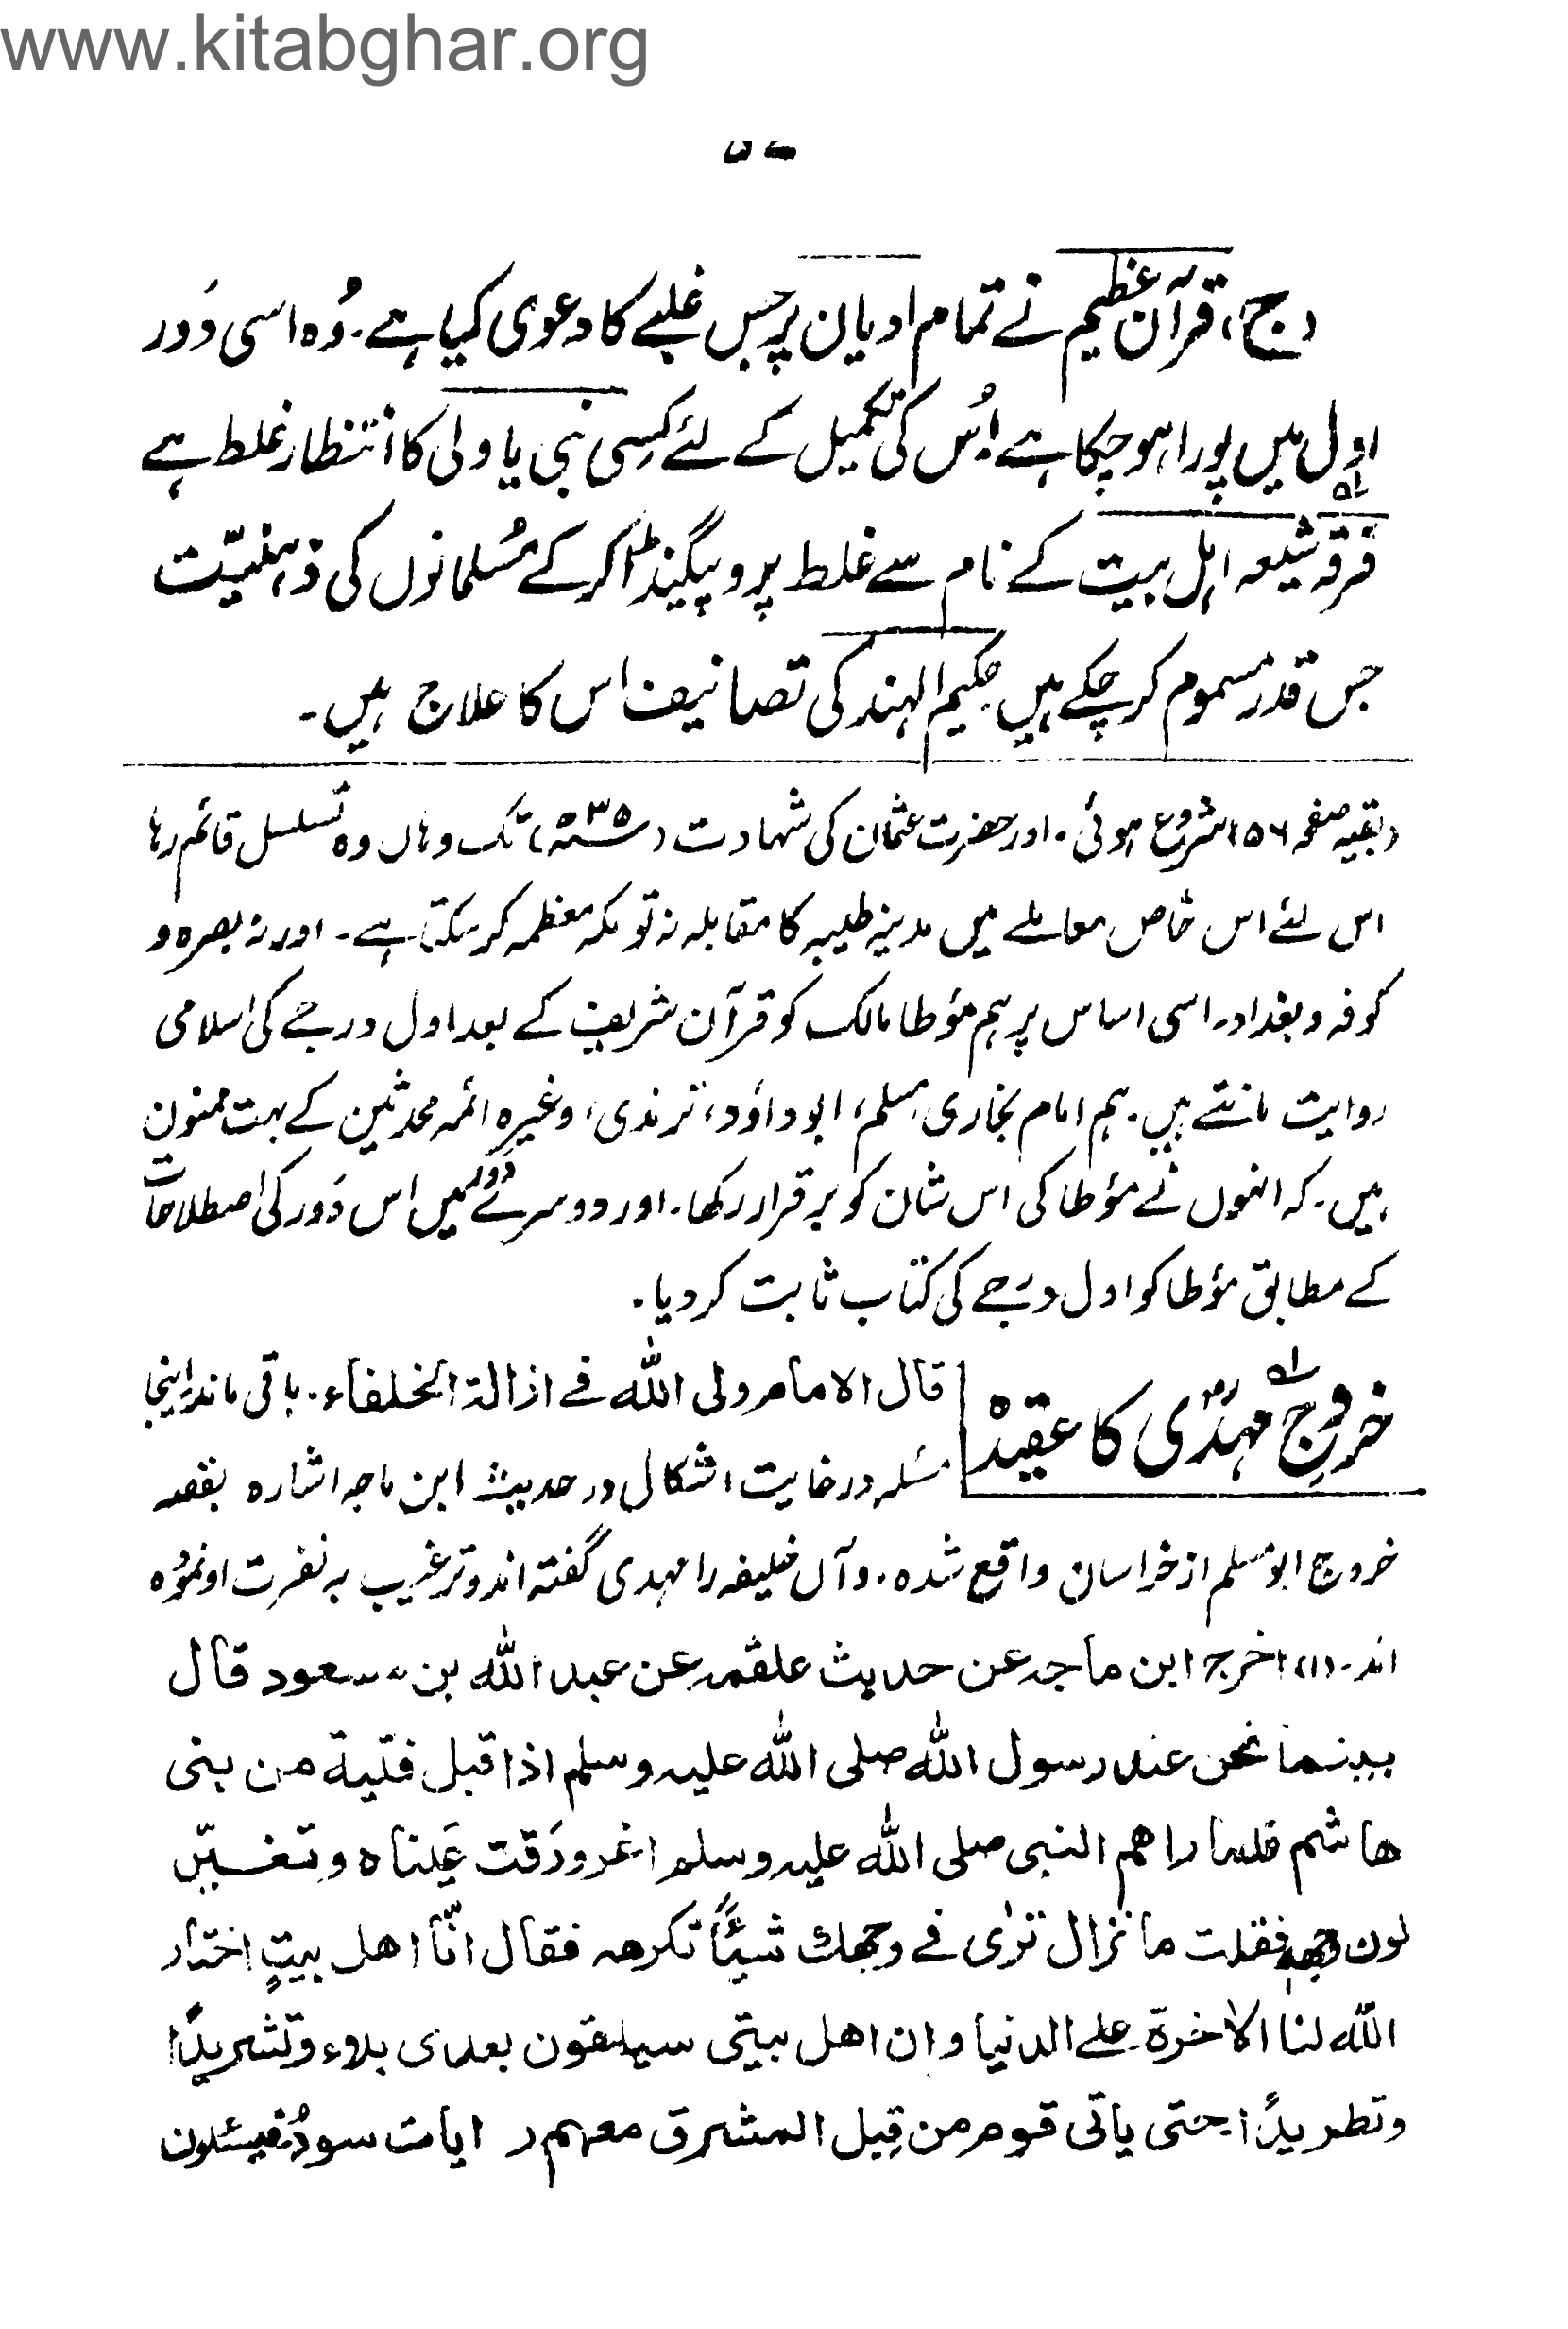 www.kitabghar.org
۵۷
(ج) قرآن عظیم نے تمام ادیان پر جس غلبے کا دعوی کیا ہے۔ وُہ اسی دَور
اول میں پورا ہو چکا ہے۔ اُس کی تکمیل کے لئے کِسی نبی یا ولی کا انتظار غلط ہے
فرقہ شیعہ اہل بیت کے نام سے غلط پروپیگنڈا کر کے مُسلمانوں کی ذہنیّت
جس قدر مسموم کر چکے ہیں حکیم الہند کی تصانیف اس کا علاج ہیں۔
(بقیہ صفحہ ۱۵۶) شروع ہوئی۔ اور حضرت عثمان کی شہادت (۳۵ھ) تک وہاں وہ تسلسل قائم رہا
اس لئے اس خاص معاملے میں مدینہ طیبہ کا مقابلہ نہ تو مکہ معظمہ کر سکتا ہے۔ اور نہ بصرہ و
کوفہ و بغداد۔ اسی اساس پر ہم مؤطا مالک کو قرآن شریف کے بعد اول درجے کی اسلامی
روایت مانتے ہیں۔ ہم امام بخاری، مسلم، ابو داؤد، ترمذی، وغیرہ ائمہ محدثین کے بہت ممنون
ہیں۔ کہ انہوں نے مؤطا کی اس شان کو برقرار رکھا۔ اور دوسرے دور میں اس دَور کی اصطلاحات
کے مطابق مؤطا کو اول درجے کی کتاب ثابت کر دیا۔
خروجِ مہدی کا عقیدہ
قال الامام ولی اللّٰہ فے ازالۃ الخلفاء۔ باقی ماند اینجا
مسٔلہ در غایت اشکال در حدیث ابن ماجہ اشارہ بقصہ
خروج ابو مسلم از خراسان واقع شدہ۔ و آں خلیفہ را مہدی گفتہ اند و ترغیب بہ نصرت او نمودہ
اند۔ (۱) اخرج ابن ماجہ عن حدیث علقمہ عن عبد اللّٰہ بن مسعود قال
بینما نحن عند رسول اللّٰہ صلی اللّٰہ علیہ وسلم اذا قبل فتیۃ من بنی
ھاشم فلما راھم النبی صلی اللّٰہ علیہ وسلم اغرورَقت عَیناہ وتغیّر
لون وجھہ فقلت ما نزال نرٰی فے وجھك شیئًا تکرھہ فقال انّا اھل بیتٍ اختار
اللّٰہ لنا الاٰخرۃ علے الدنیا وان اھل بیتی سیلقون بعدی بلاء وتشریدًا
وتطریدًا حتی یاتی قوم من قِبل المشرق معھم رایات سودٌ فیسئلون